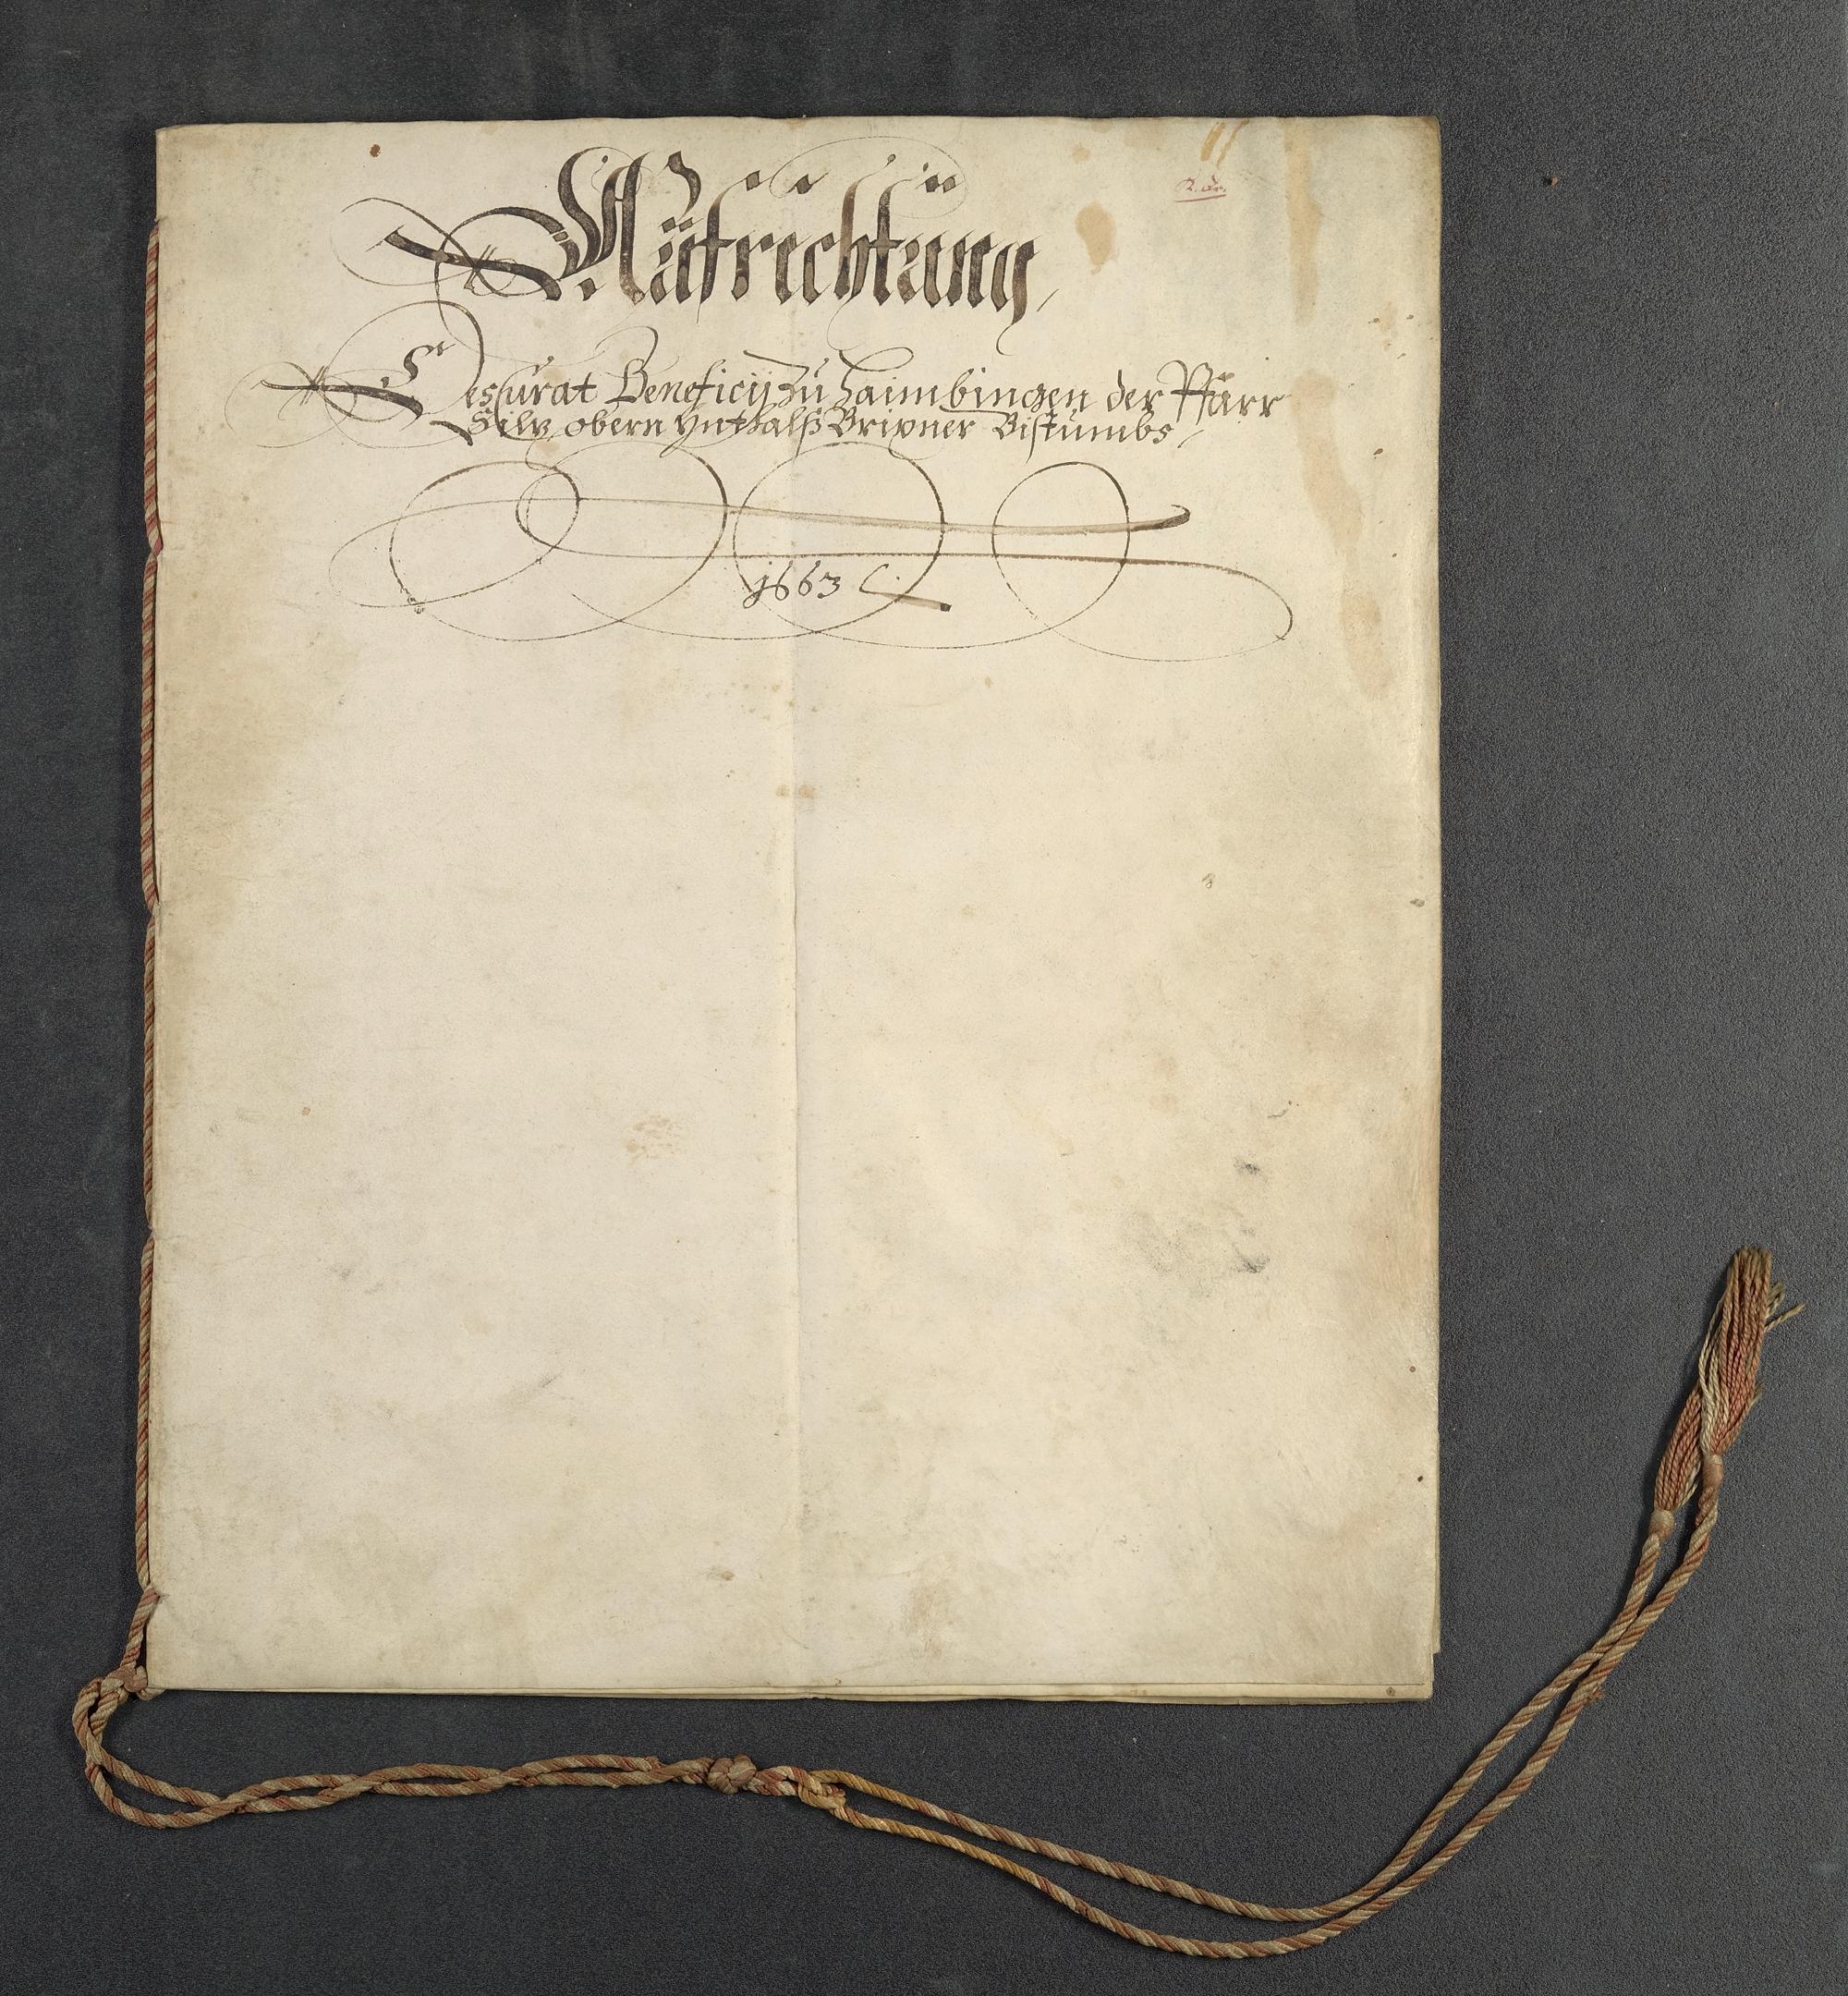 Aufrichtung,
Des Curat Beneficij zu Haimbingen der Pfarr
Silz, obern Ynthalß Brixner Bistumbs,
1663